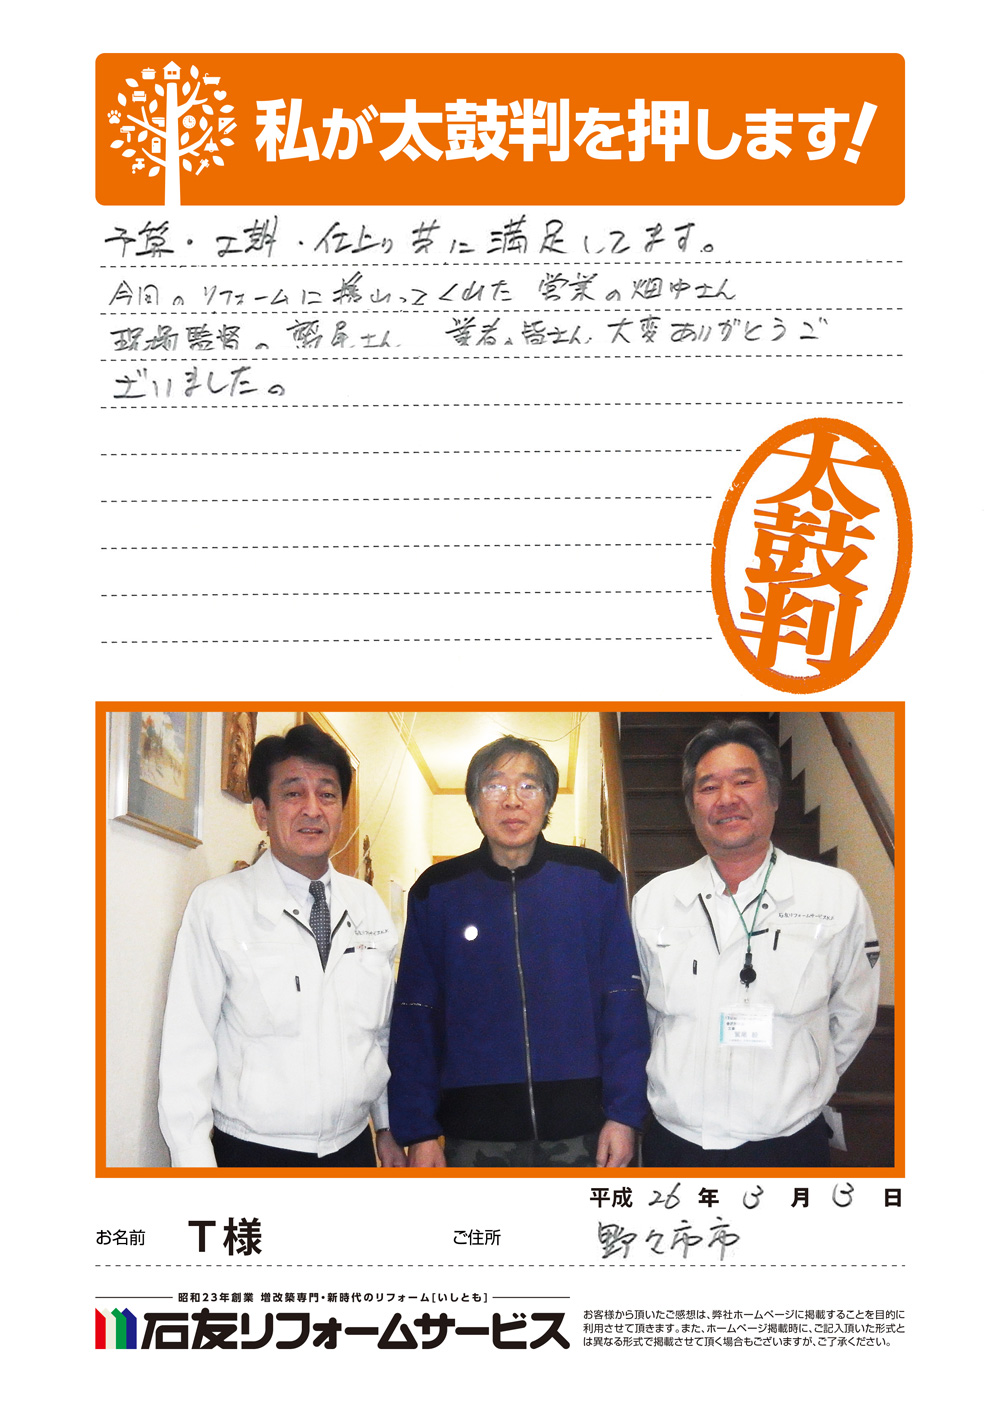 私が太鼓判を押します!
予算・工期・仕上り共に満足してます。
今回のリフォームに携わってくれた 営業の畑中さん
現場監督の鷲尾さん 業者の皆さん 大変ありがとうご
ざいました。
太鼓判
石友リフォームサービス
平成 26 年 3 月 13 日
お名前 T様 ご住所 野々市市
昭和23年創業 増改築専門・新時代のリフォーム[いしとも]
石友リフォームサービス
お客様から頂いたご感想は、弊社ホームページに掲載することを目的に
利用させて頂きます。また、ホームページ掲載時に、ご記入頂いた形式と
は異なる形式で掲載させて頂く場合もございますが、ご了承ください。